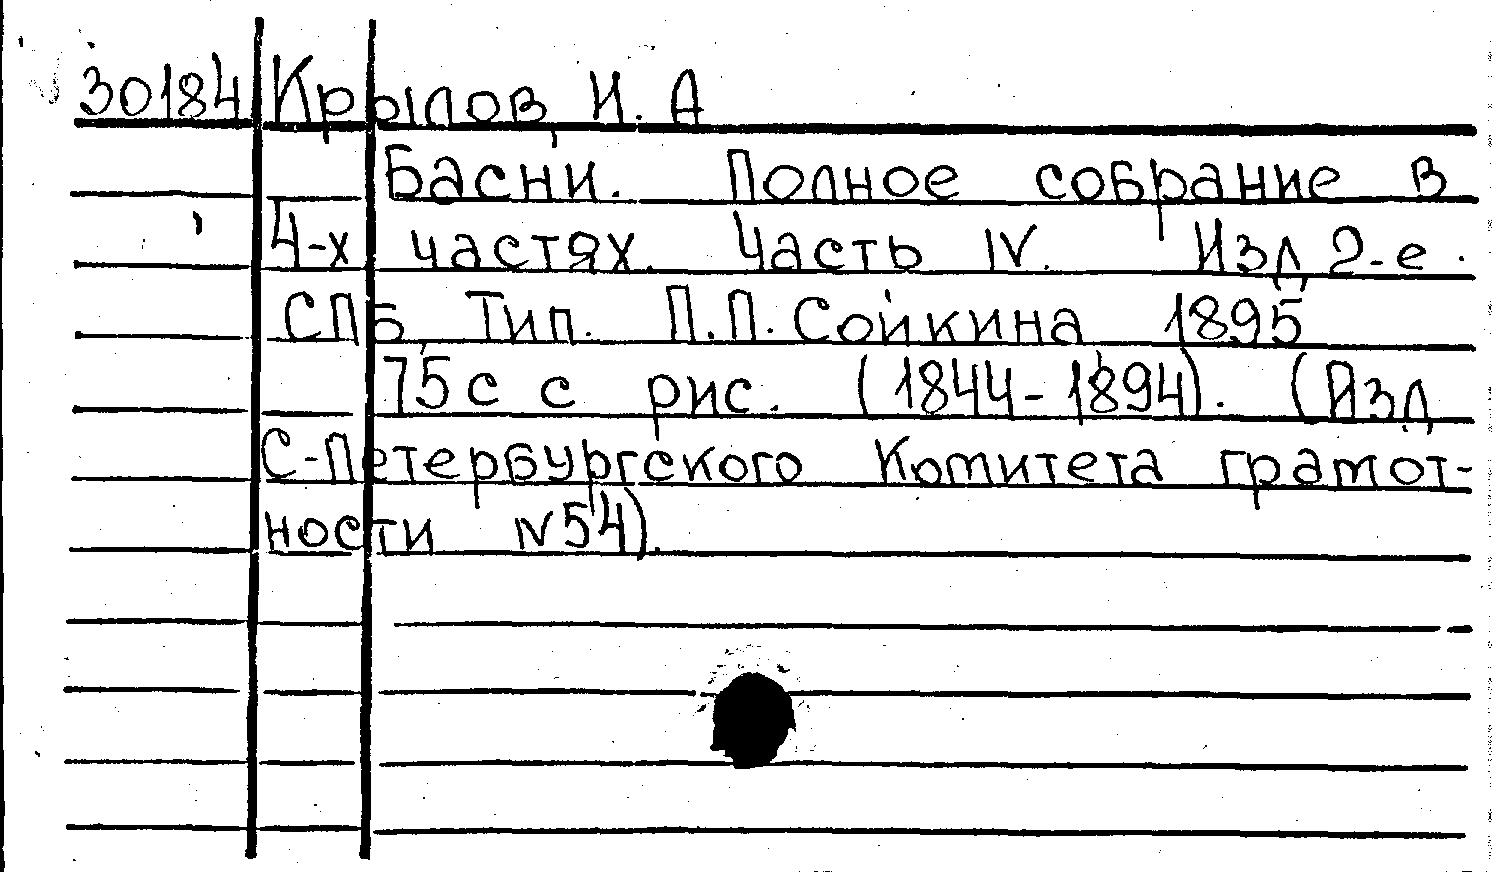 30184 Крылов, И. А
Басни. Полное собрание в
4-х частях. Часть IV. Изд 2-е.
СПБ, Тип. П.П. Сойкина 1895
75 с с рис. (1844-1894). (Изд
С-Петербургского Комитета грамот-
ности N54).